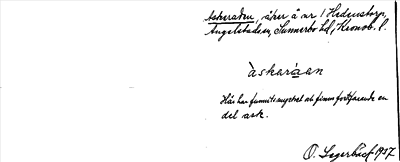 Askeraden, åker å nr 1 Hedenstorp,
Angelstads sn, Sunnerbo hd, Kronob. l.
àskaràan
Här har funnits mycket och finnes fortfarande en
del ask.
O. Lagerbäck 1937